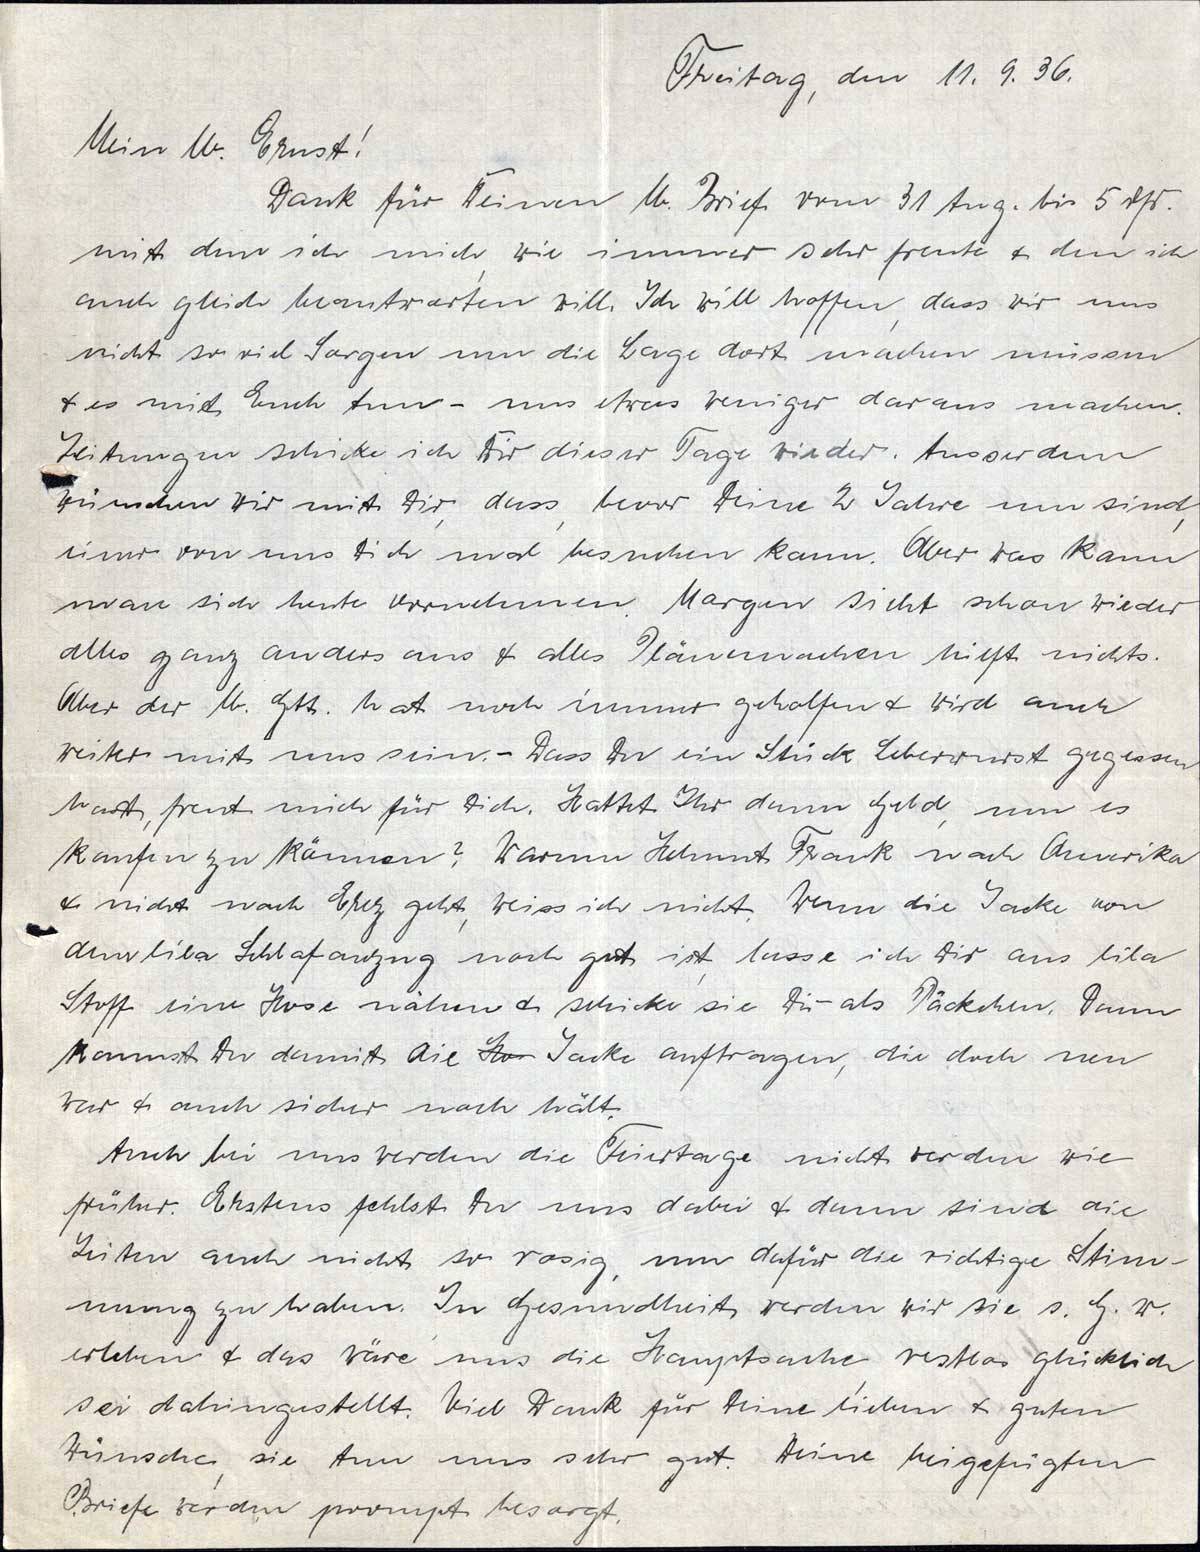 Freitag, den 11. 9. 36.
Mein lb. Ernst!
Dank für Deinen lb. Brief vom 31 Aug. bis 5 dfs.
mit dem ich mich, wie immer sehr freute & den ich
auch gleich beantworten will. Ich will hoffen, dass wir uns
nicht so viel Sorgen um die Lage dort machen müssen
& es mit Euch tun - uns etwas weniger daraus machen.
Zeitungen schicke ich Dir dieser Tage wieder. Ausserdem
wünschen wir mit Dir, dass, bevor Deine 2 Jahre um sind,
einer von uns Dich mal besuchen kann. Aber was kann
man sich heute vornehmen. Morgen sieht schon wieder
alles ganz anders aus & alles Plänemachen hilft nichts.
Aber der lb. Gtt. hat noch immer geholfen & wird auch
weiter mit uns sein. - Dass Du ein Stück Leberwurst gegessen
hast, freut mich für Dich. Hattet Ihr denn Geld, um es
kaufen zu können? Warum Helmut Frank nach Amerika
& nicht nach Erez geht, weiss ich nicht. Wenn die Jacke von
dem lila Schlafanzug noch gut ist, lasse ich Dir aus lila
Stoff eine Hose nähen & schicke sie Dir als Päckchen. Dann
kannst Du damit die Hos Jacke auftragen, die doch neu
war & auch sicher noch hält.
Auch bei uns werden die Feiertage nicht werden wie
früher. Erstens fehlst Du uns dabei & dann sind die
Zeiten auch nicht so rosig, um dafür die richtige Stim-
mung zu haben. In Gesundheit werden wir sie s. G. w.
erleben & das wäre uns die Hauptsache, restlos glücklich
sei dahingestellt. Viel Dank für Deine lieben & guten
Wünsche, sie tun uns sehr gut. Deine beigefügten
Briefe werden prompt besorgt.